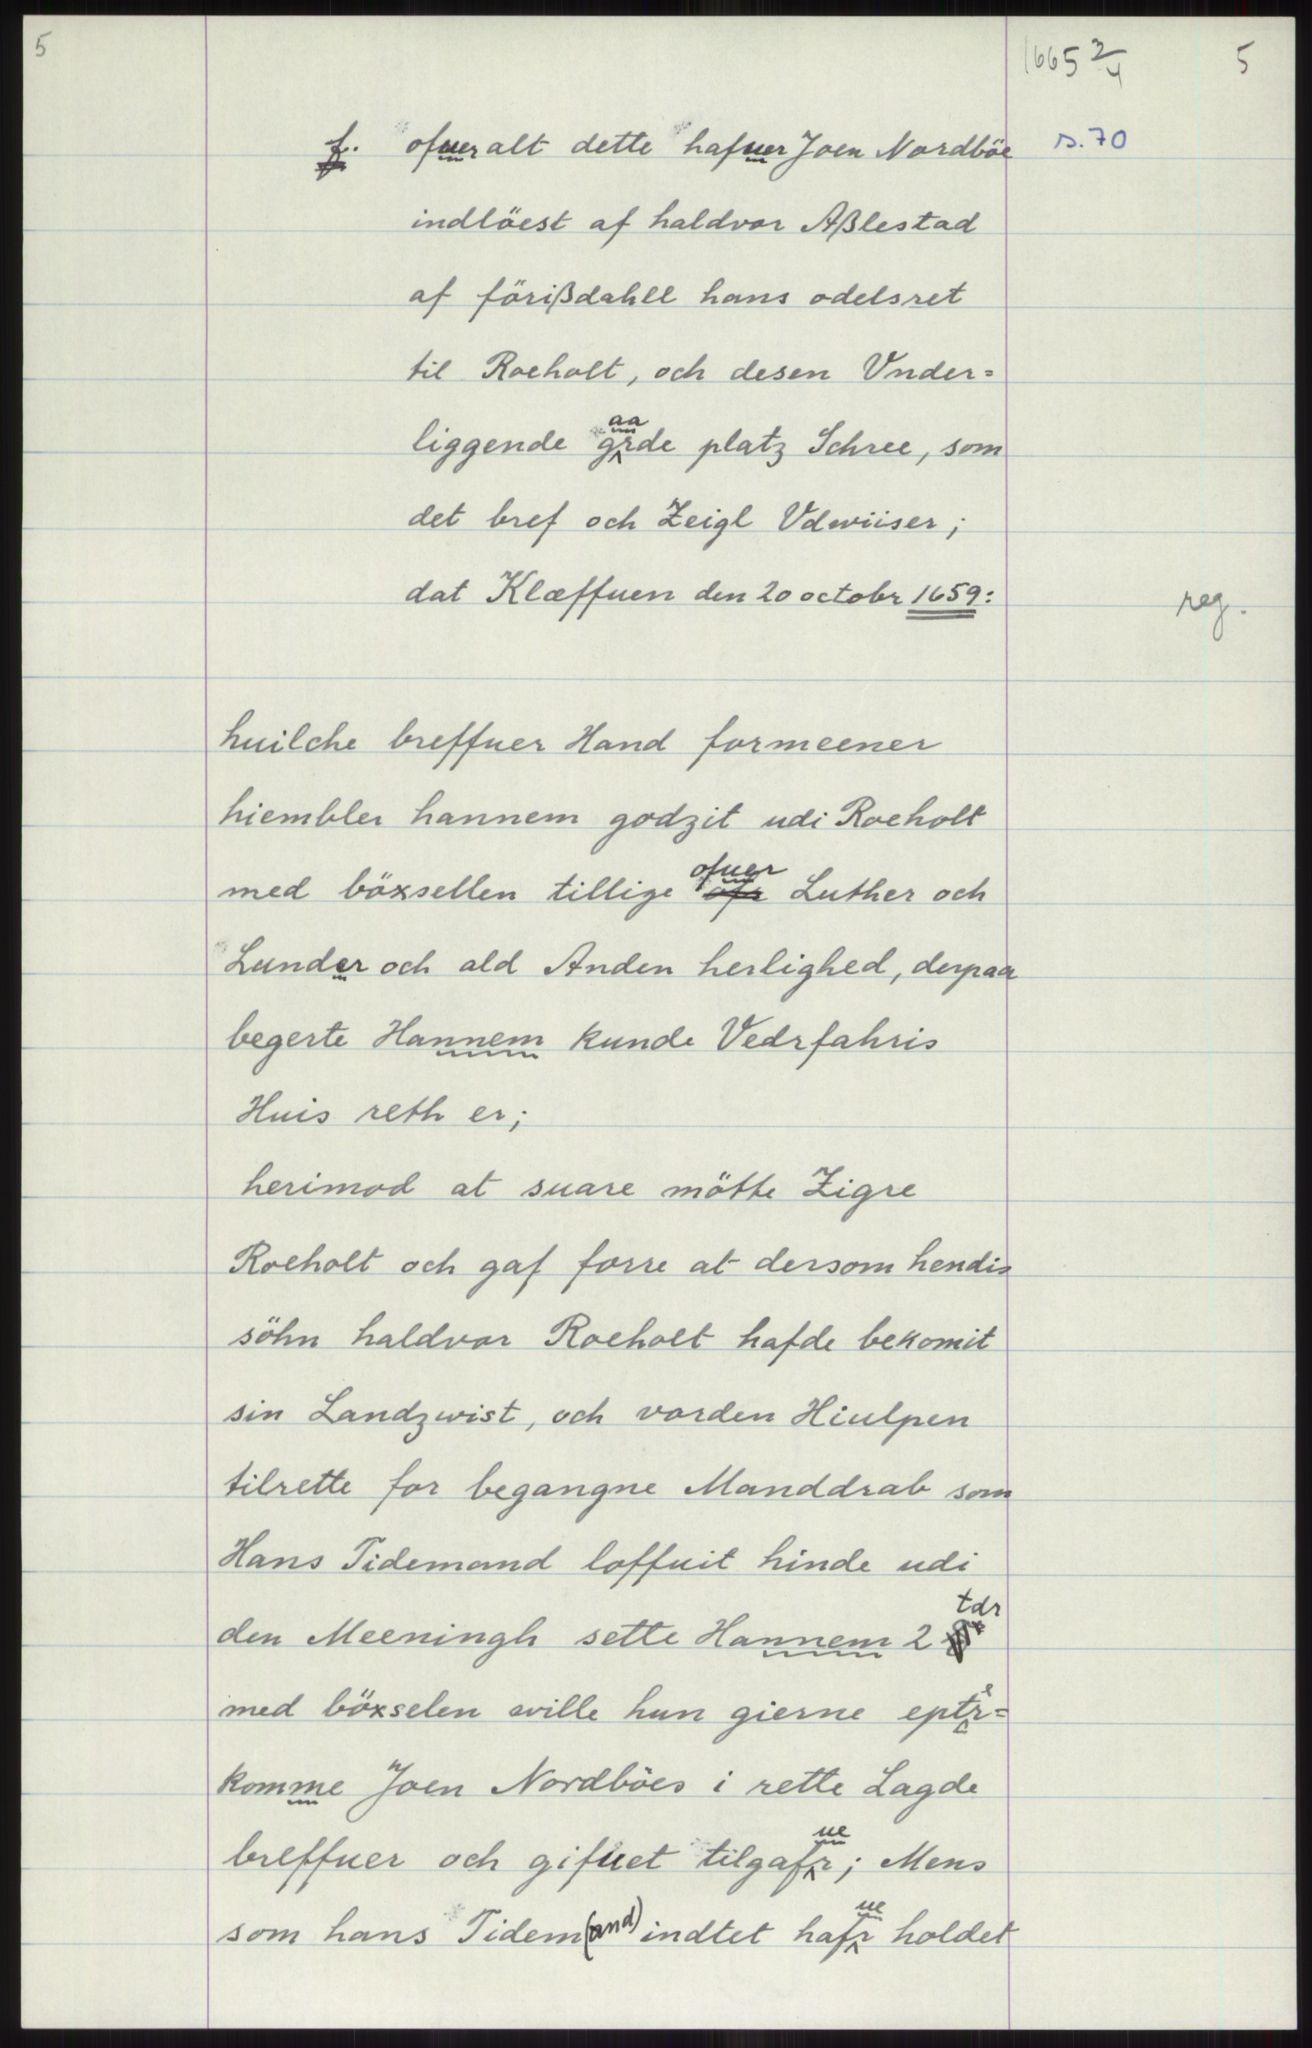 5
1665 2/4
5
f. ofueralt dette hafuer Joen Nordböe
s. 70
indlöest af haldvor Aßlestad
af förißdahll hans odelsret
til Roeholt, och desen Vnder=
liggende gaarde platz Schree, som
det bref och Zeigl Vdwiiser;
dat Klæffuen den 20 octobr 1659:
reg.
huilche breffuer Hand formeener
hiembler hannem godzit udi Roeholt
med böxsellen tillige ofuer Luther och
Lunder och ald Anden herlighed, derpaa
begerte Hannem kunde Vedrfahris
Huis reth er;
herimod at suare mötte Zigre
Roeholt och gaf forre at dersom hendis
söhn haldvor Roeholt hafde bekomit
sin Landzwist, och vorden Hiulpen
tilrette for begangne Manddrab som
Hans Tidemand loffuit hinde udi
den Meeningh sette Hannem 2 tdr
med böxselen wille hun gierne epter=
komme Joen Nordböes i rette Lagde
breffuer och gifuet tilgafuer; Mens
som hans Tidem(and) indtet hafuer holdet